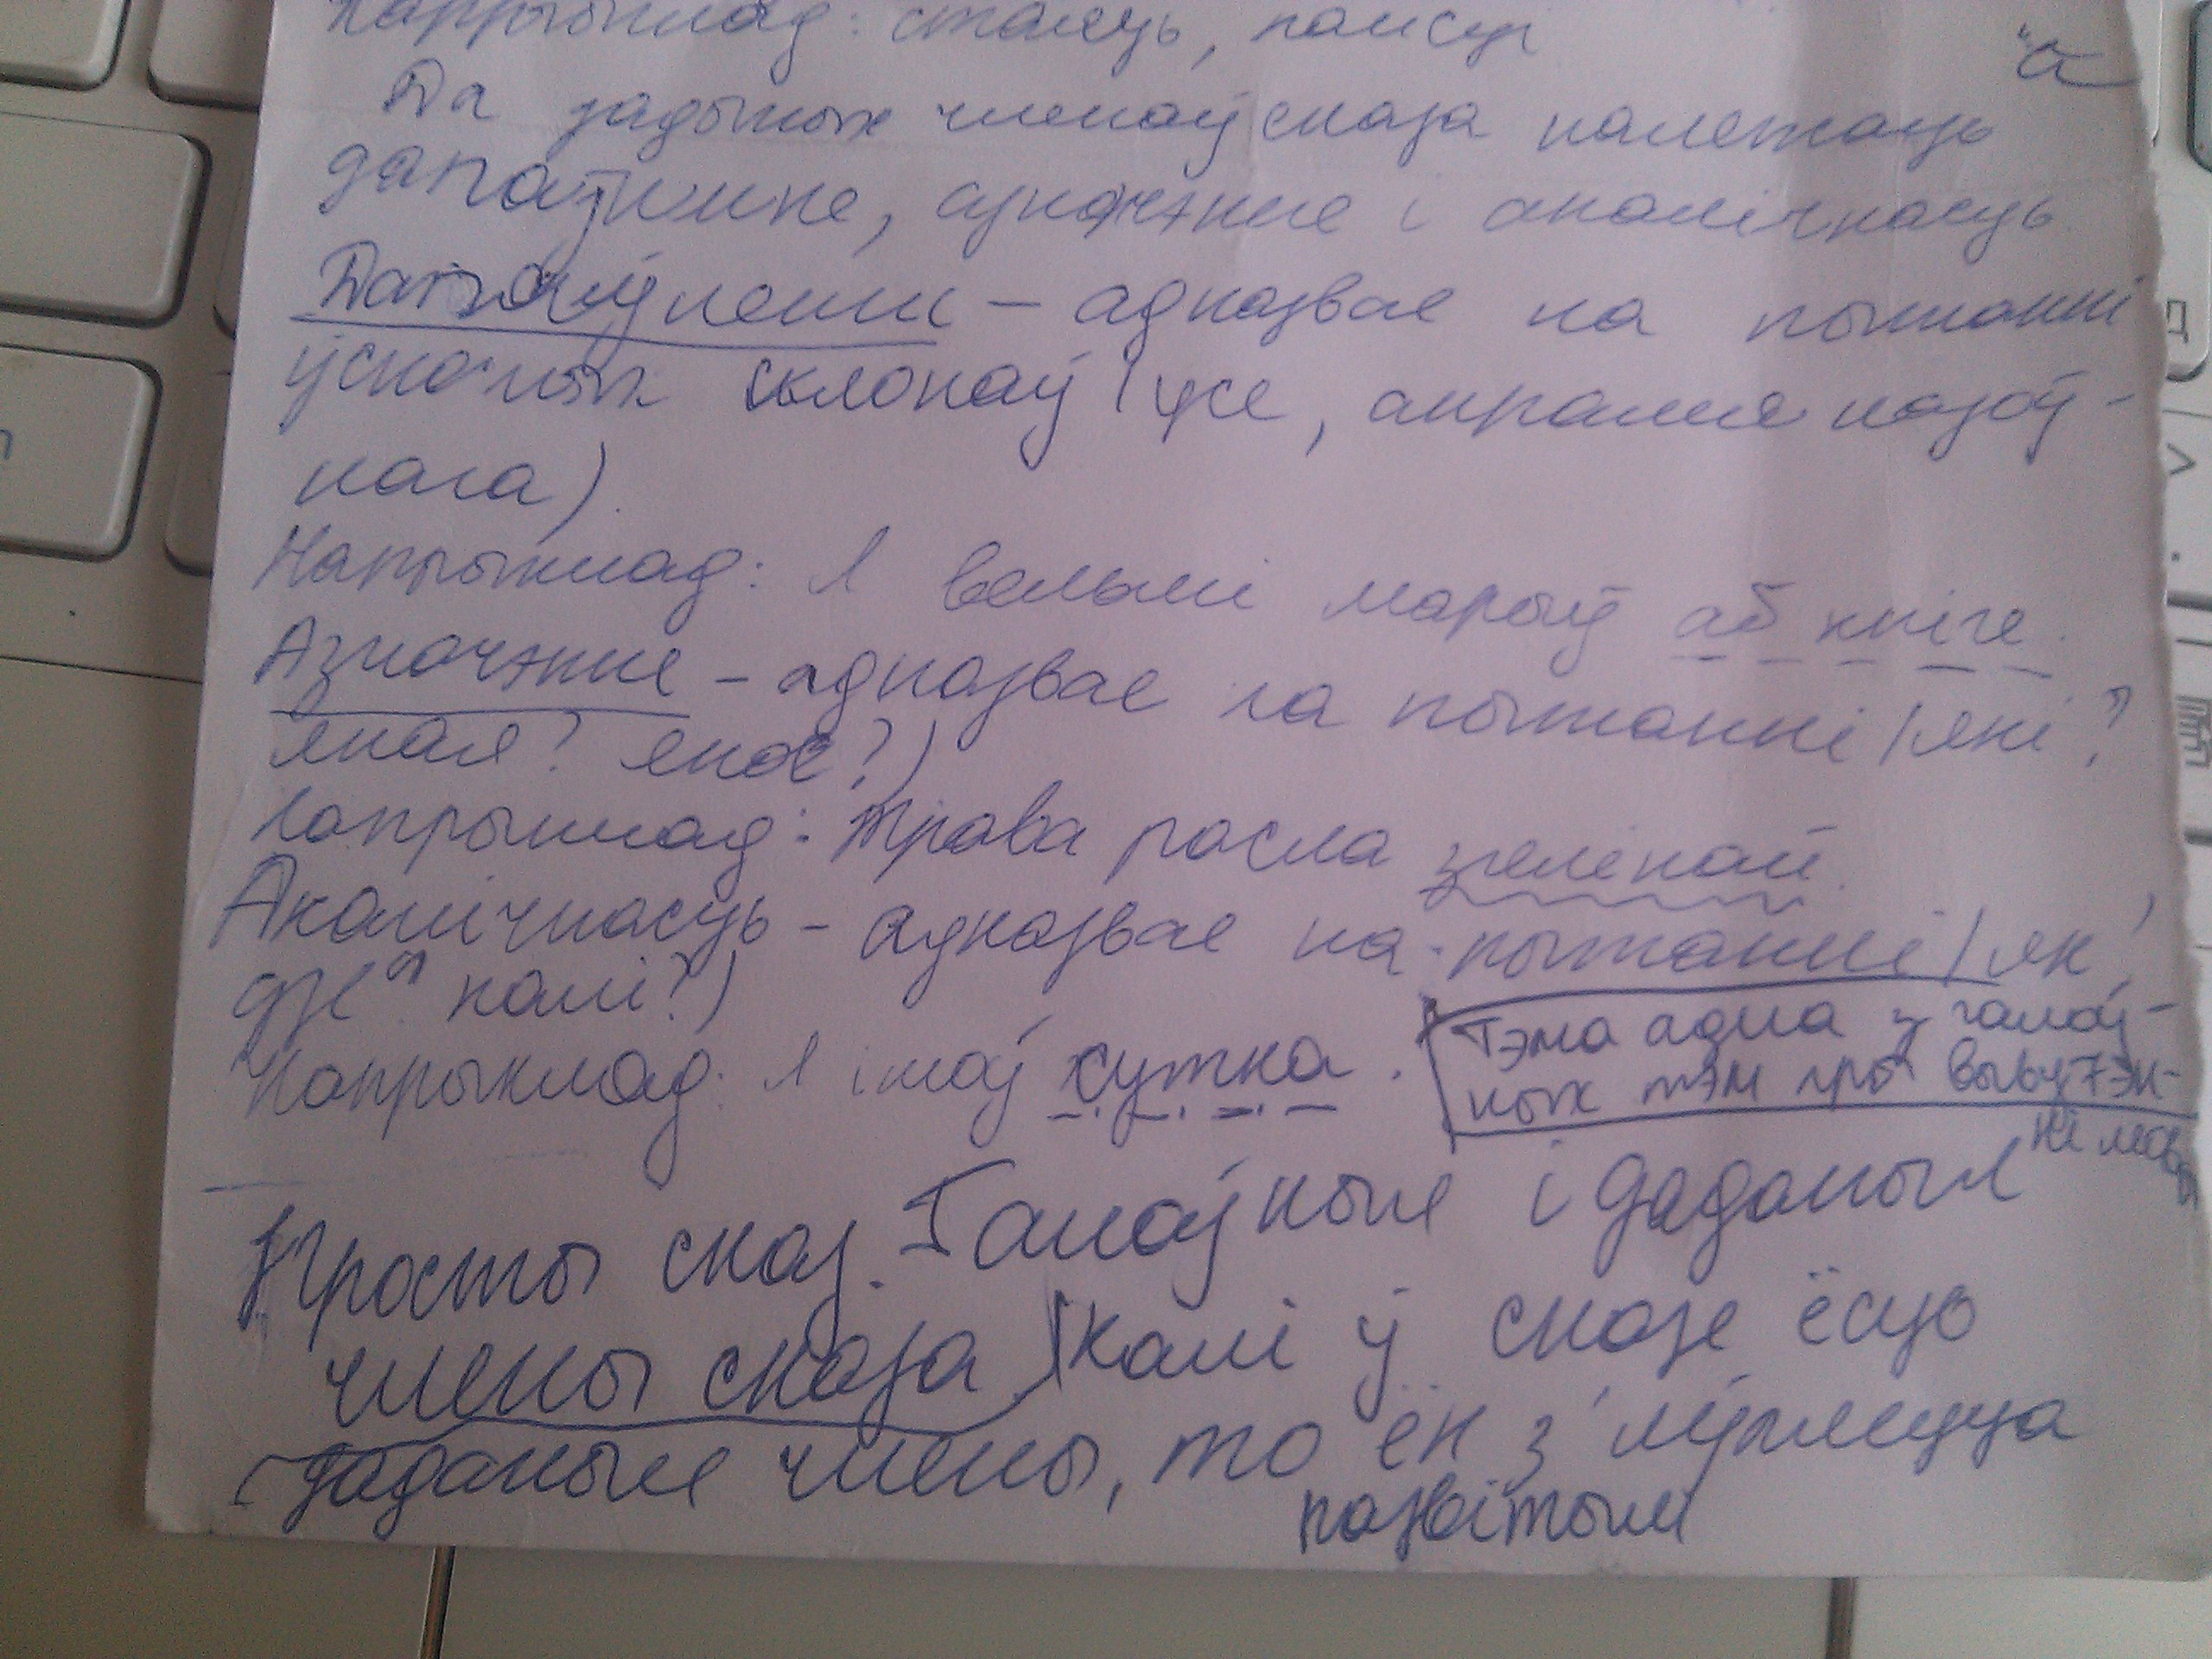 Напрыклад: сталец, 
Да даданых членаў сказа належаць
дапаўнне, азначэнне і акалічнасць
Дапаўненне – адказвае на пытанні
ўскосных склонаў (усе, акрамя назоў-
нага).
Напрыклад: Я вельмі марыў аб кнізе.
Азначэнне – адказвае на пытанні (які?
якая? якое?)
Напрыклад: Трава расла зелёнай.
Акалічнасць – адказвае на пытанні (як,
дзе? калі?)
Напрыклад: Я ішоў хутка.
Тэма адна з галоў-
ных тэм пры вывучэн-
ні мовы
Просты сказ. Галоўныя і даданыя
члены сказа (Калі ў сказе ёсць
даданыя члены, то ён з'яўляецца
развітым